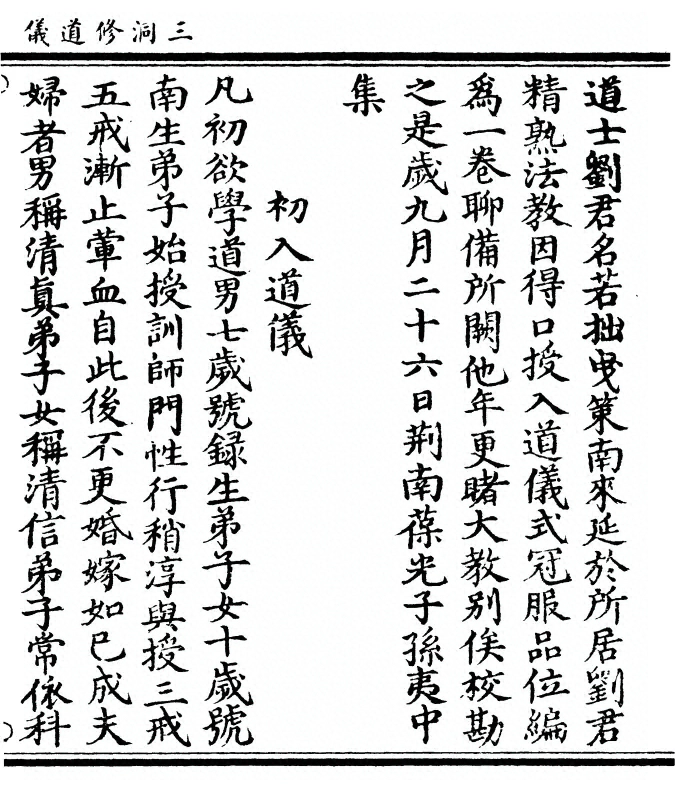 三洞修道儀
道士劉君名若拙曳策南來延於所居劉君
精熟法教因得口授入道儀式冠服品位編
爲一卷聊備所闕他年更睹大教別俟校勘
之是歲九月二十六日荆南葆光子孫夷中
集
初入道儀
凡初欲學道男七歲號録生弟子女十歲號
南生弟子始授訓師門性行稍淳與授三戒
五戒漸止葷血自此後不更婚嫁如已成夫
婦者男稱清眞弟子女稱清信弟子常依科